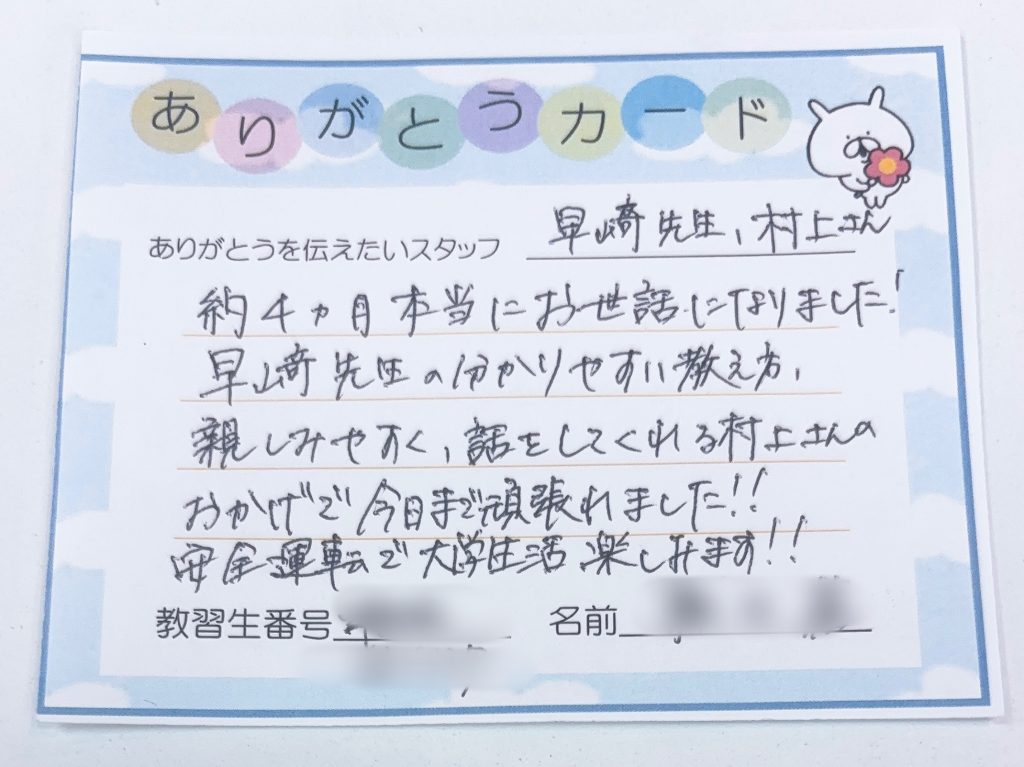 ありがとうカード
ありがとうを伝えたいスタッフ 早崎先生、村上さん
約4ヵ月本当にお世話になりました!
早崎先生の分かりやすい教え方、
親しみやすく、話をしてくれる村上さんの
おかげで今日まで頑張れました!!
安全運転で大学生活楽しみます!!
教習生番号 名前